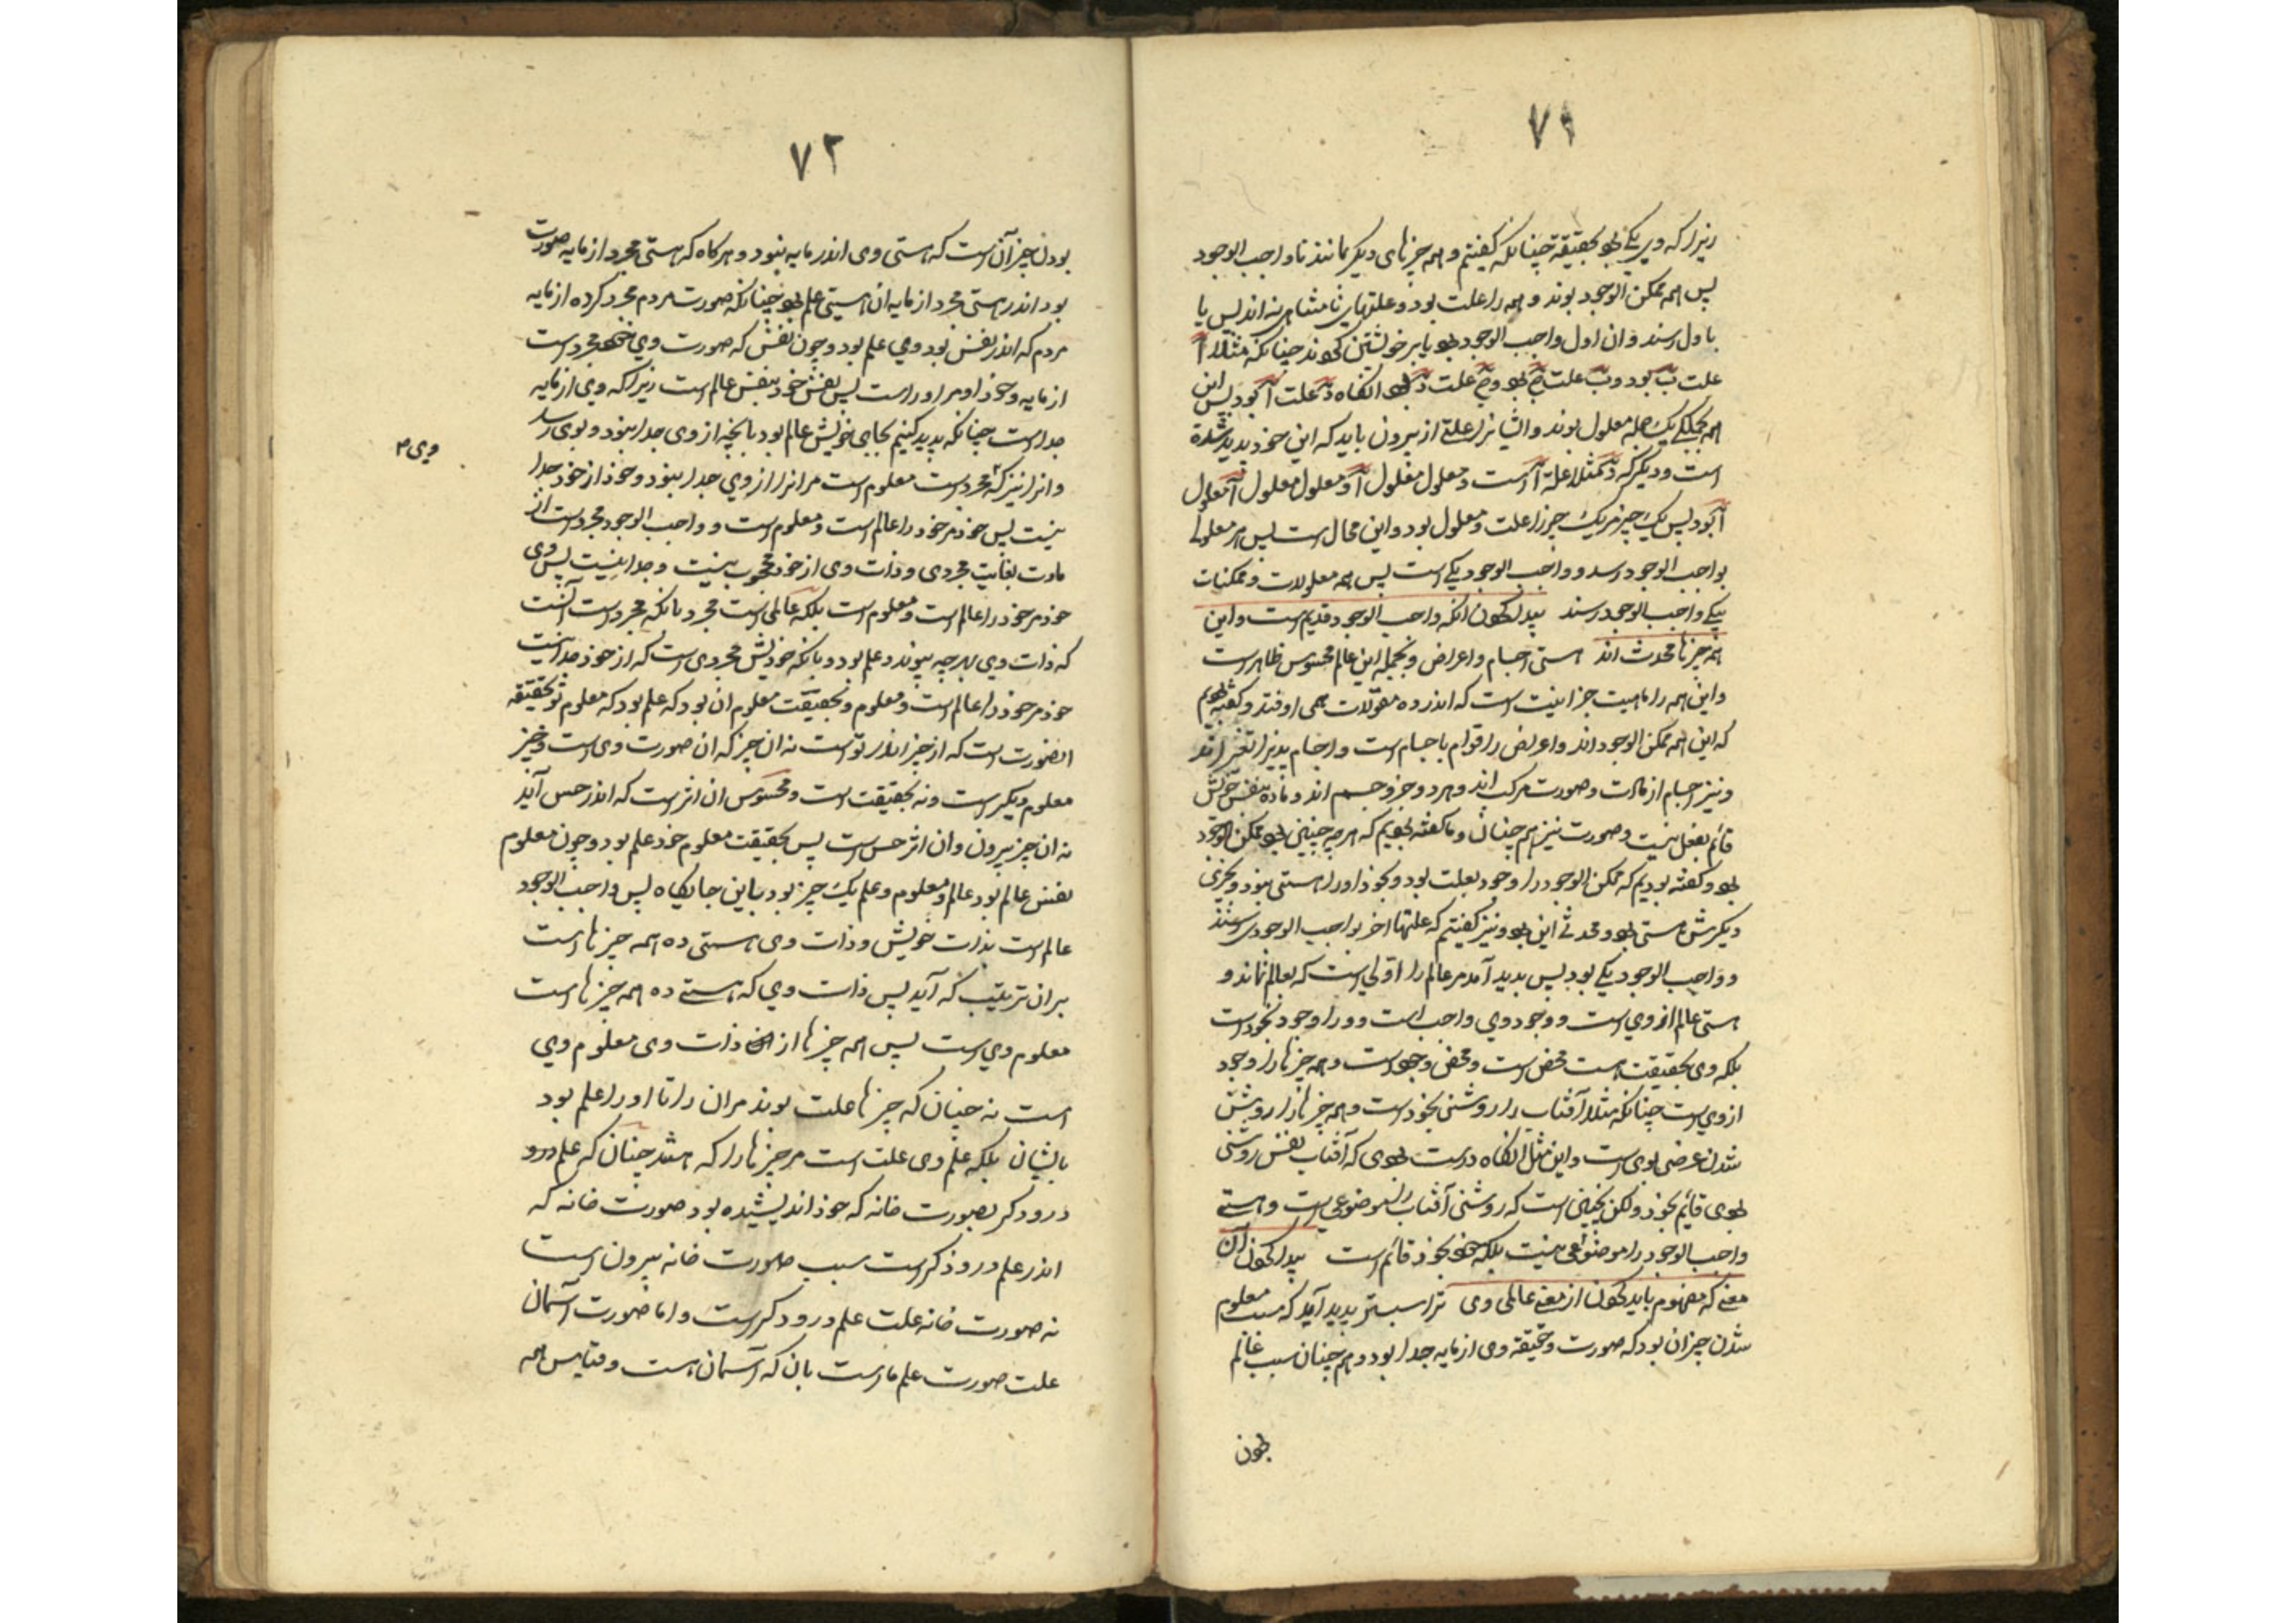 ۷۱
زیرا که وی یکی بود بحقیقة چنانکه گفتیم و همه چیزهای دیگر نمانند تا واجب الوجود
پس همه ممکن الوجود بوند و همه را علت بود و علتهای نامتناهی نه اند پس یا
باول رسند و ان اول واجب الوجود بود یا بر خویشتن گردند چنانکه مثلا آ
علت ب بود و ب علت ج بود و ج علت د بود انگاه د علت آ بود پس این
همه بجملگی یک جمله معلول بوند و ایشانرا علتی از بیرون باید که این خود پدید شده
است و دیگر که د مثلا علة آ است و معلول معلول آ و معلول معلول معلول
آ بود پس یک چیز مر یک چیز را علت و معلول بود و این محال است پس هر معلولی
بواجب الوجود رسد و واجب الوجود یکی است پس همه معلولات و ممکنات
بیکی واجب الوجود رسند پیدا کردن انکه واجب الوجود قدیم است و این
همه چیزها محدث اند هستی اجسام و اعراض و بجمله این عالم محسوس ظاهر است
و این همه را ماهیت جز انیت است که اندر ده مقولات همی اوفتند و گفته بودیم
که این همه ممکن الوجود اند و اعراض را قوام باجسام است و اجسام پذیرا تغیر اند
و نیز اجسام از مادت و صورت مرکب اند و هر دو جزو جسم اند و ماده بنفس خویش
قائم بفعل نیست و صورت نیز هم چنان و ما گفته بودیم که هر چه چنین بود ممکن الوجود
بود و گفته بودیم که ممکن الوجود را وجود بعلت بود و بخود او را هستی نبود و بچیزی
دیگرش هستی بود و محدثی این بود و نیز گفتیم که علتها اخر بواجب الوجود رسند
و واجب الوجود یکی بود پس پدید آمد مر عالم را اولی است که بعالم نماند و
هستی عالم از وی است و وجود وی واجب است و ورا وجود بخود است
بلکه وی بحقیقت هست محض است و محض وجود است و همه چیزها را وجود
از وی است چنانکه مثلا آفتاب را روشنی بخود است و همه چیزها را روشن
شدن عرضی بوی است و این مثال انگاه درست بودی که آفتاب نفس روشنی
بودی قائم بخود ولکن نچنین است که روشنی آفتاب را موضوعی است و هستی
واجب الوجود را موضوعی نیست بلکه خود بخود قائم است پیدا کردن آن
معنی که مفهوم باید کردن از معنی عالمی وی ترا سپستر پدید آید که سبب معلوم
شدن چیز ان بود که صورت و حقیقة وی از مایه جدا بود و هم چنان سبب عالم
بودن
۷۲
بودن چیز آن است که هستی وی اندر مایه نبود و هرگاه که هستی مجرد از مایه صورت
بود اندر هستی مجرد از مایه ان هستی علم بود چنانکه صورت مردم مجرد کرده از مایه
مردم که اندر نفس بود وی علم بود و چون نفس که صورت وی خود مجرد است
از مایه و خود او مر او را است پس نفس خود بنفس عالم است زیرا که وی از مایه
جداست چنانکه پدید کنیم بجای خویش عالم بود بانچه از وی جدا نبود و بوی رسد
و انرا نیز که مجرد است معلوم است مر انرا از وی جدا نبود و خود از خود جدا
وی م
نیست پس خود مر خود را عالم است و معلوم است و واجب الوجود مجرد است از
مادت بغایت مجردی و ذات وی از خود محجوب نیست و جدا نیست پس وی
خود مر خود را عالم است و معلوم است بلکه عالمی است مجرد بانکه مجرد است آنست
که ذات وی بهر چه پیوندد علم بود و بانکه خویش مجردی است که از خود جدا نیست
خود مر خود را عالم است و معلوم و بحقیقت معلوم ان بود که علم بود که معلوم تو بحقیقه
انصورت است که از چیز اندر تو است نه ان چیز که ان صورت وی است و چیز
معلوم دیگر است و نه بحقیقت است و محسوس ان اثر است که اندر حس آید
نه ان چیز بیرون و ان اثر حس است پس بحقیقت معلوم خود علم بود و چون معلوم
نفس عالم بود عالم و معلوم و علم یک چیز بود باین جایگاه پس واجب الوجود
عالم است بذات خویش و ذات وی هستی ده همه چیزها است
بران ترتیب که آید پس ذات وی که هستی ده همه چیزها است
معلوم وی است پس همه چیزها از ذات وی معلوم وی
است نه چنان که چیزها علت بوند مران را تا او را علم بود
بایشان بلکه علم وی علت است مر چیزها را که هستند چنان که علم درو
درودگر بصورت خانه که خود اندیشیده بود صورت خانه که
اندر علم درودگر است سبب صورت خانه بیرون است
نه صورت خانه علت علم درودگر است و اما صورت آسمان
علت صورت علم ماست بان که آسمان هست و قیاس همه